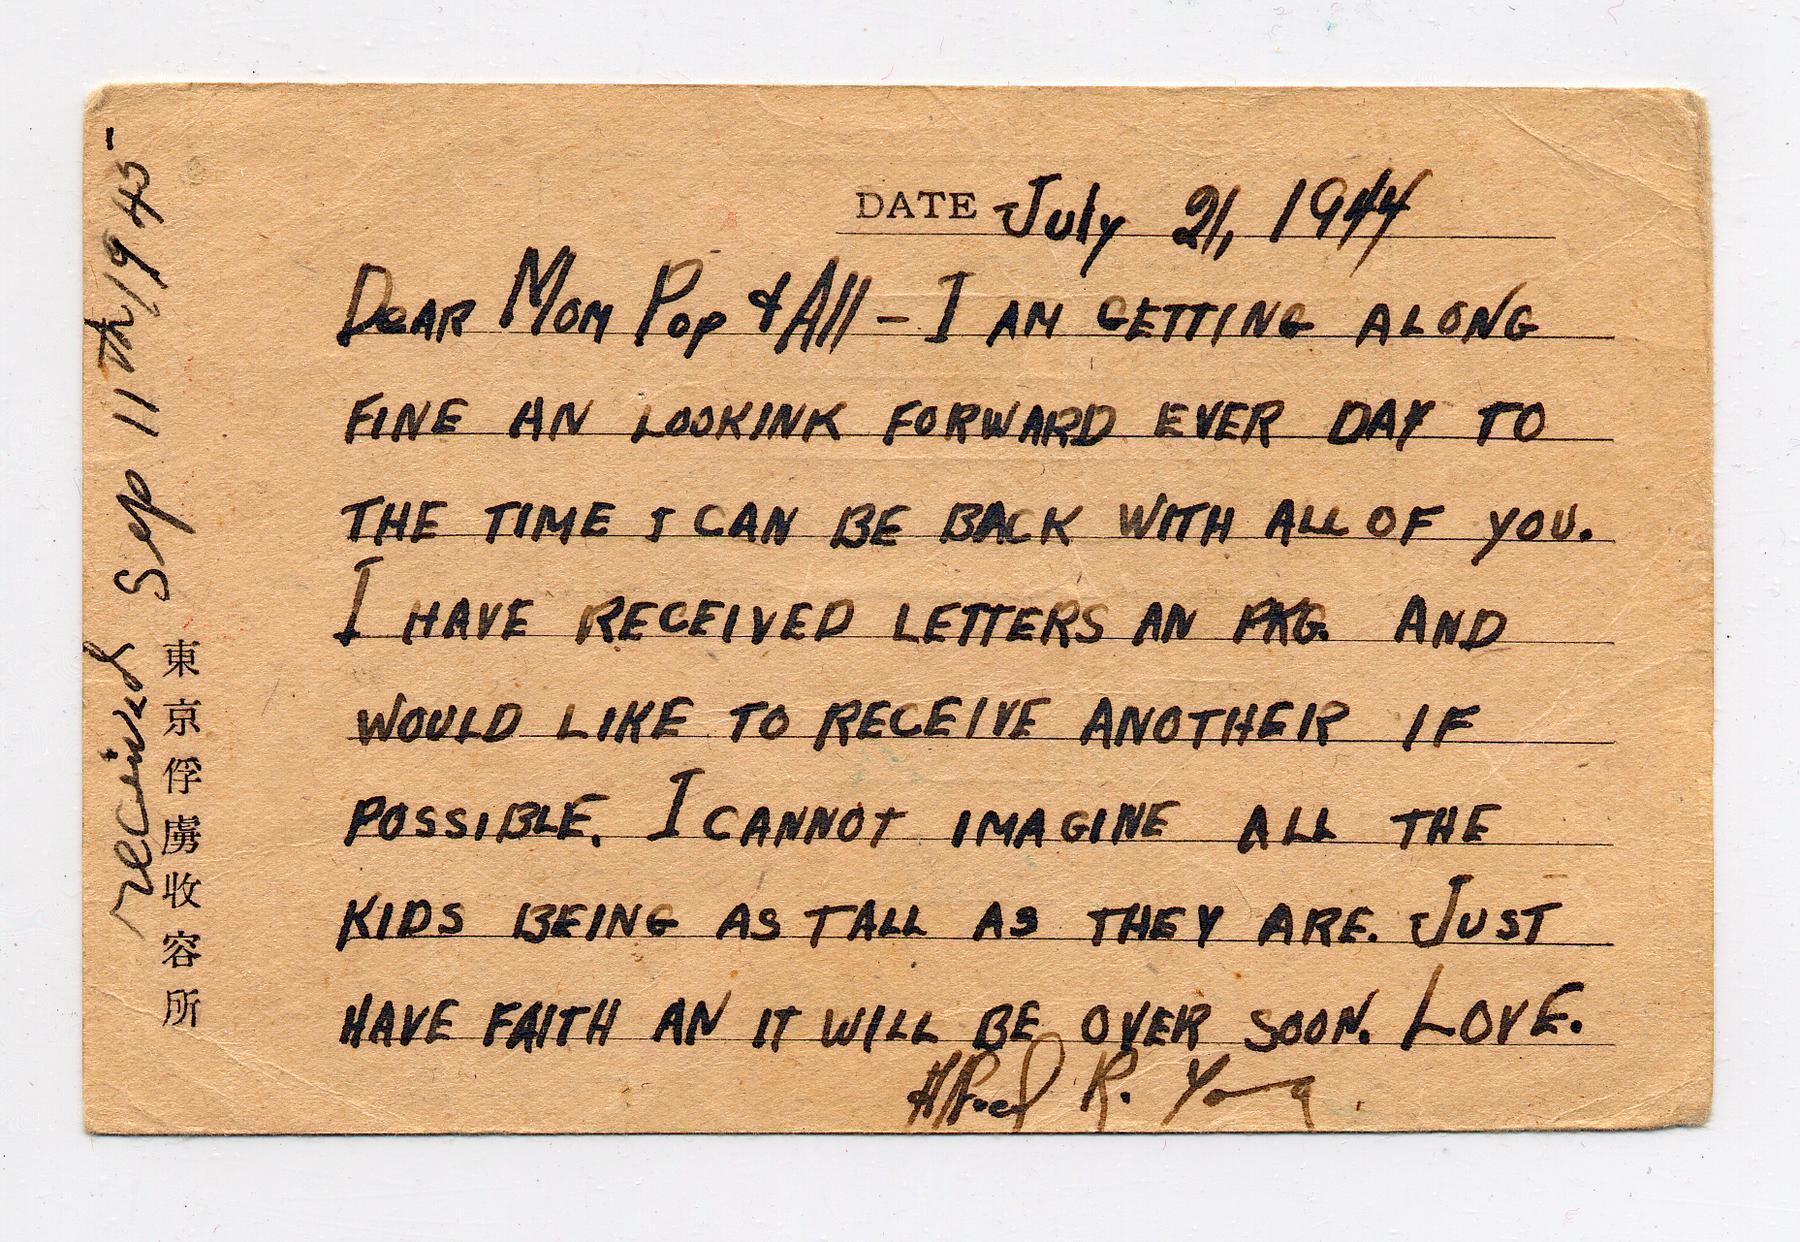 DATE July 21, 1944
Dear Mom Pop & All – I AM GETTING ALONG
FINE AN LOOKINK FORWARD EVER DAY TO
THE TIME I CAN BE BACK WITH ALL OF YOU.
I HAVE RECEIVED LETTERS AN PKG. AND
WOULD LIKE TO RECEIVE ANOTHER IF
POSSIBLE. I CANNOT IMAGINE ALL THE
KIDS BEING AS TALL AS THEY ARE. JUST
HAVE FAITH AN IT WILL BE OVER SOON. LOVE.
Alfred R. Young.
received Sep 11th/1945-
東京俘虜收容所